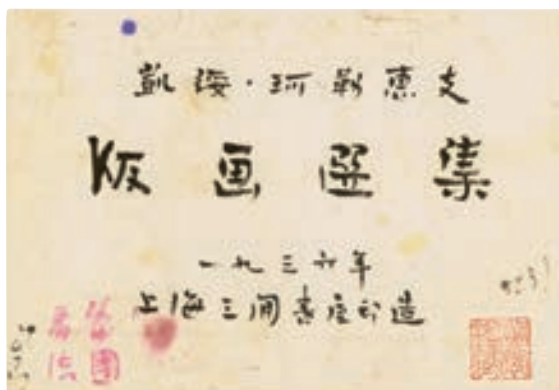 凱綏·珂勒惠支
版画選集
一九三六年
上海三闲書屋印造